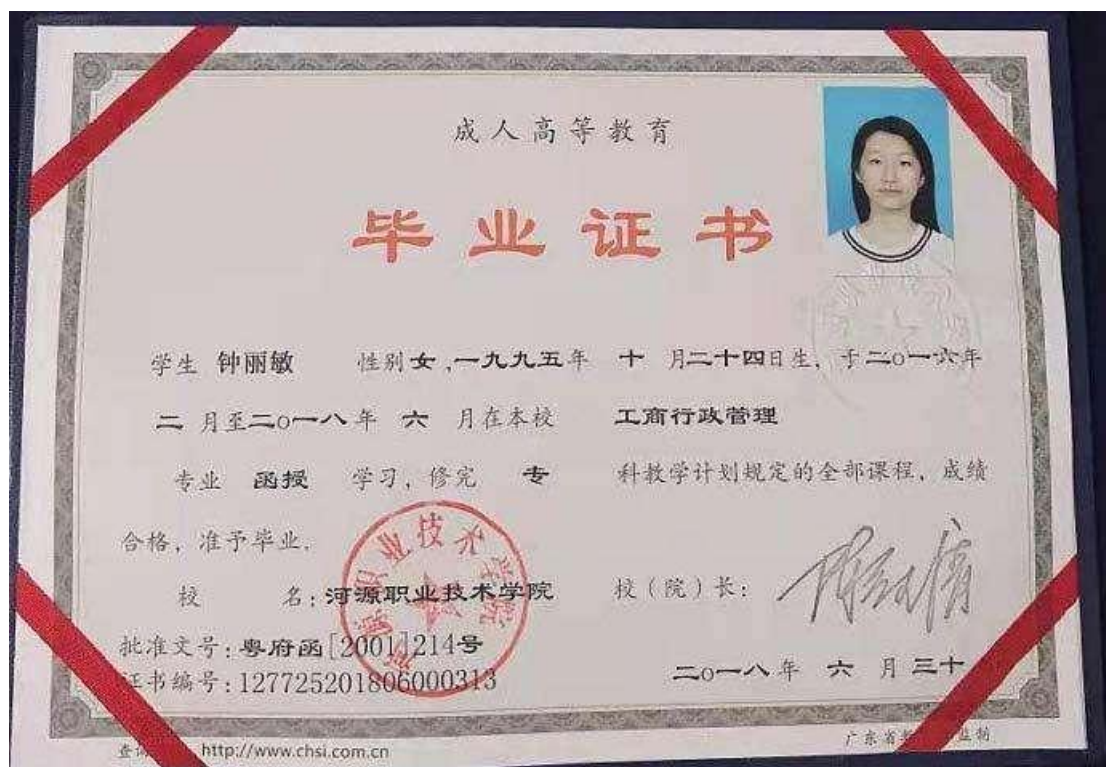 成人高等教育
毕业证书
学生 钟丽敏 性别 女,一九九五年 十 月二十四日生,于二o一六年
二 月至二o一八年 六 月在本校 工商行政管理
专业 函授 学习,修完 专 科教学计划规定的全部课程,成绩
合格,准予毕业.
河源职业技术学院
校 名:河源职业技术学院 校(院)长:
批准文号:粤府函[2001]214号
证书编号:127725201806000313
二o一八年 六 月三十
查 http://www.chsi.com.cn
广东省 监制